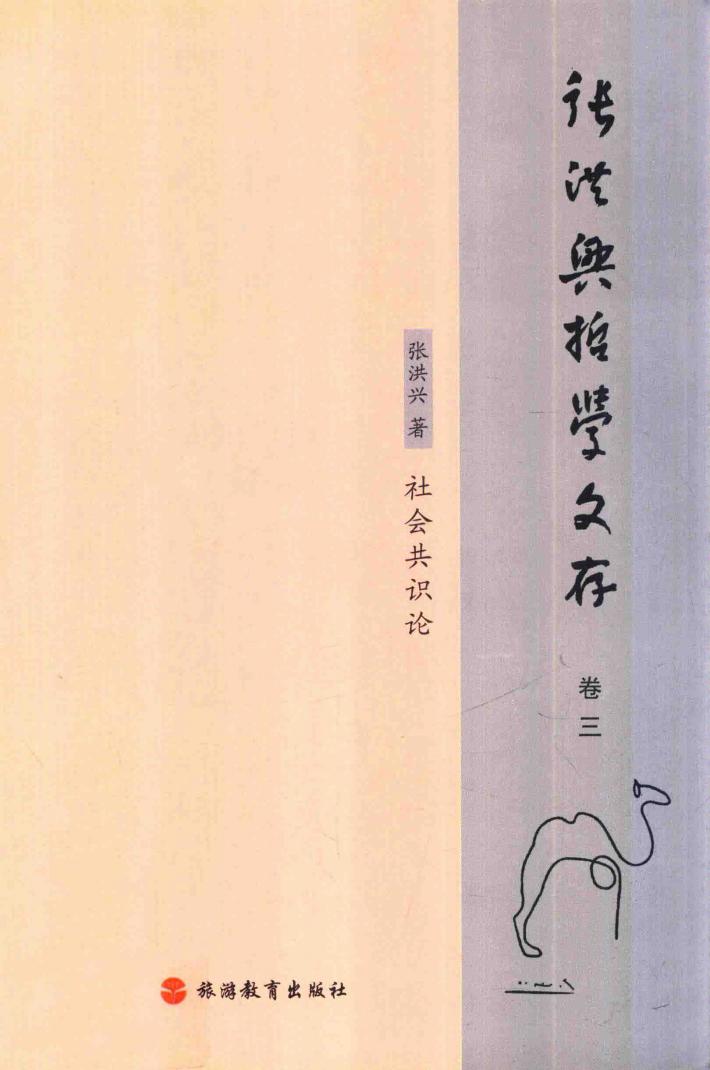 張洪興哲學文存
卷三
张洪兴 著
社会共识论
旅游教育出版社